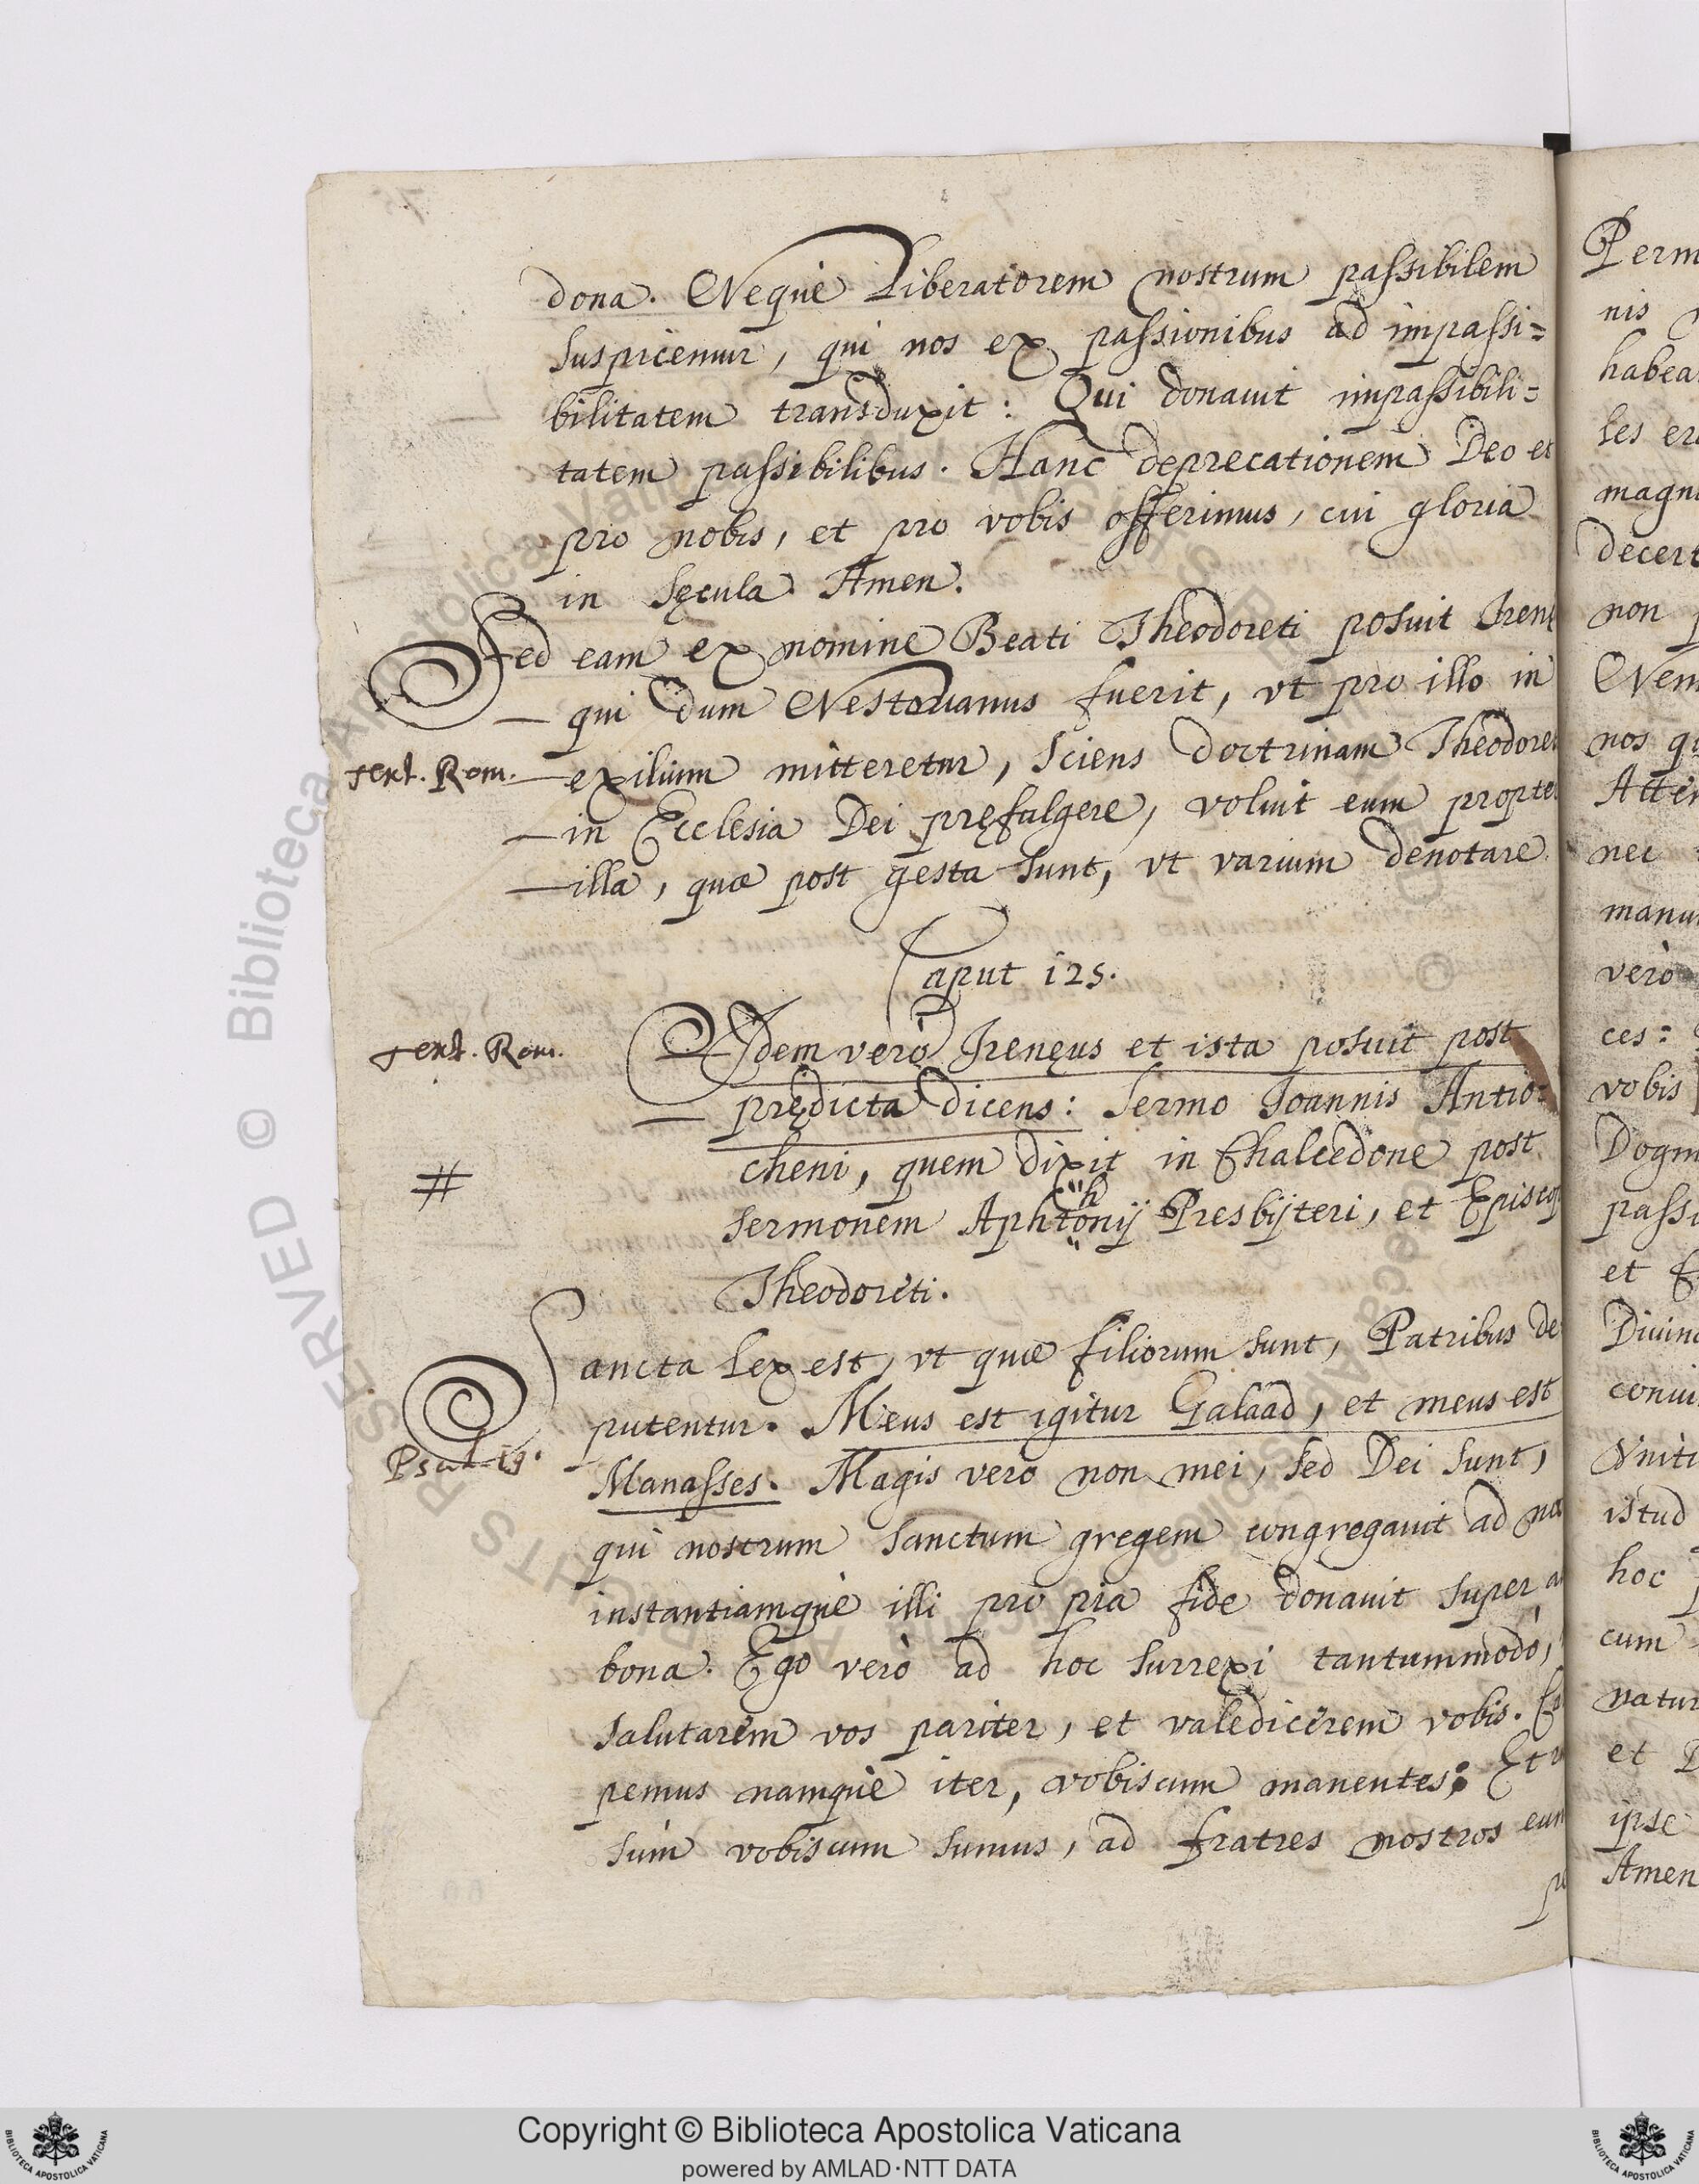 dona. Neque Liberatorem nostrum passibilem
suspicemur, qui nos ex passionibus ad impassi=
bilitatem transduxit: Qui donauit impassibili=
tatem passibilibus. Hanc deprecationem Deo et
pro nobis, et pro vobis offerimus, cui gloria
in sęcula. Amen.
Sed eam ex nomine Beati Theodoreti posuit Iren
qui dum Nestorianus fuerit, vt pro illo in
text. Rom.
exilium mitteretur, sciens doctrinam Theodore
in Ecclesia Dei pręfulgere, voluit eum propte
illa, quæ post gesta sunt, vt varium denotare.
Caput 125.
text. Rom.
Idem verò Irenęus et ista posuit post
prędicta dicens: Sermo Ioannis Antio=
cheni, quem dixit in Chalcedone post
#
sermonem Aphtonij Presbijteri, et Episcop
h
Theodoreti.
Sancta lex est, vt quæ filiorum sunt, Patribus de
putentur. Meus est igitur Galaad, et meus est
Psal.
Manasses. Magis vero non mei, sed Dei sunt,
qui nostrum sanctum gregem congregauit ad
instantiamque illi pro pia fide donauit super
bona. Ego verò ad hoc surrexi tantummodò,
salutarem vos pariter, et valedicerem vobis.
pemus namque iter, vobiscum manentes; Et
sum vobiscum sumus, ad fratres nostros eun
Perm
nis
habea
les
magn
decert
non
Nem
nos
Atte
nec
manu
verò
ces:
vobis
Dogm
passi
et
Diuin
conui
Vnit
istud
hoc
cum
natur
et
ipse
Amen
© Biblioteca Apostolica Vaticana
Copyright © Biblioteca Apostolica Vaticana
powered by AMLAD·NTT DATA
BIBLIOTECA APOSTOLICA VATICANA
BIBLIOTECA APOSTOLICA VATICANA